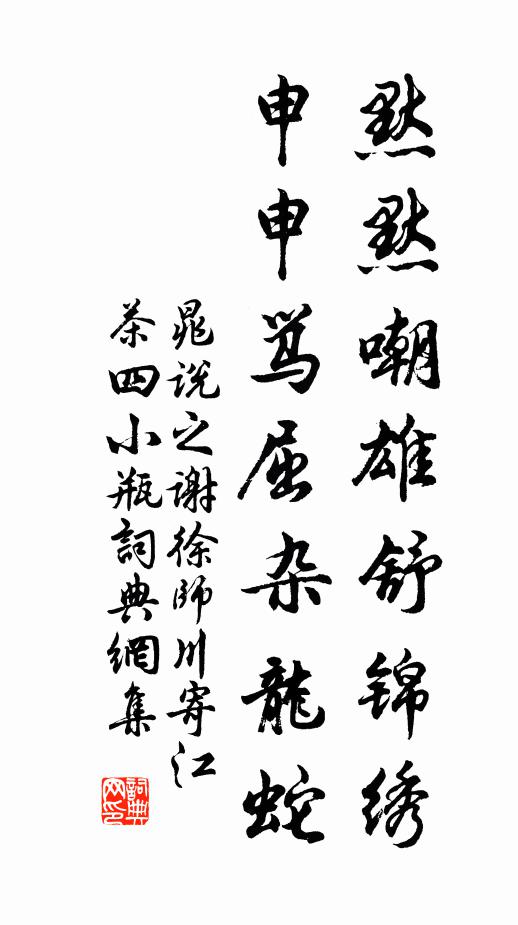 默默嘲雄舒锦绣
申申骂屈杂龍蛇
晁说之谢徐师川寄江
茶四小瓶詞典網集
詞典
网印